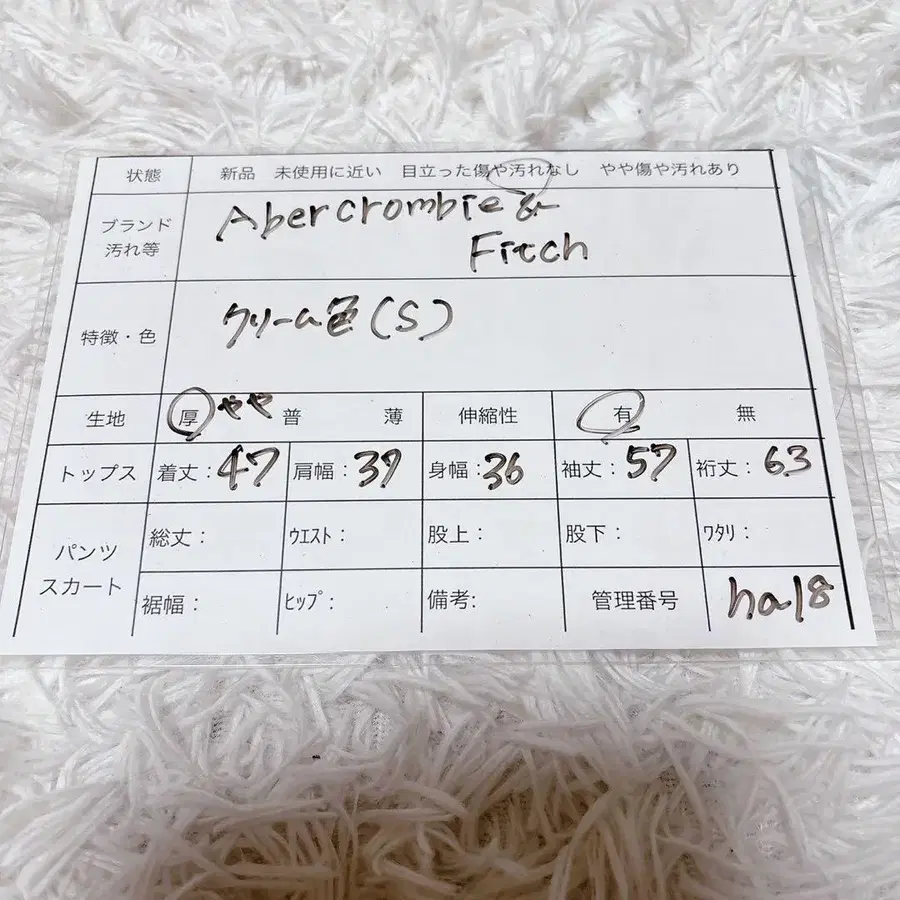 状態 新品 未使用に近い 目立った傷や汚れなし やや傷や汚れあり
ブランド Abercrombie &
汚れ等 Fitch
特徴・色 クリーム色(S)
生地 厚 やや 普 薄 伸縮性 有 無
トップス 着丈:47 肩幅:39 身幅:36 袖丈:57 裄丈:63
パンツ スカート 総丈: ウエスト: 股上: 股下: ワタリ:
裾幅: ヒップ: 備考: 管理番号 ha18